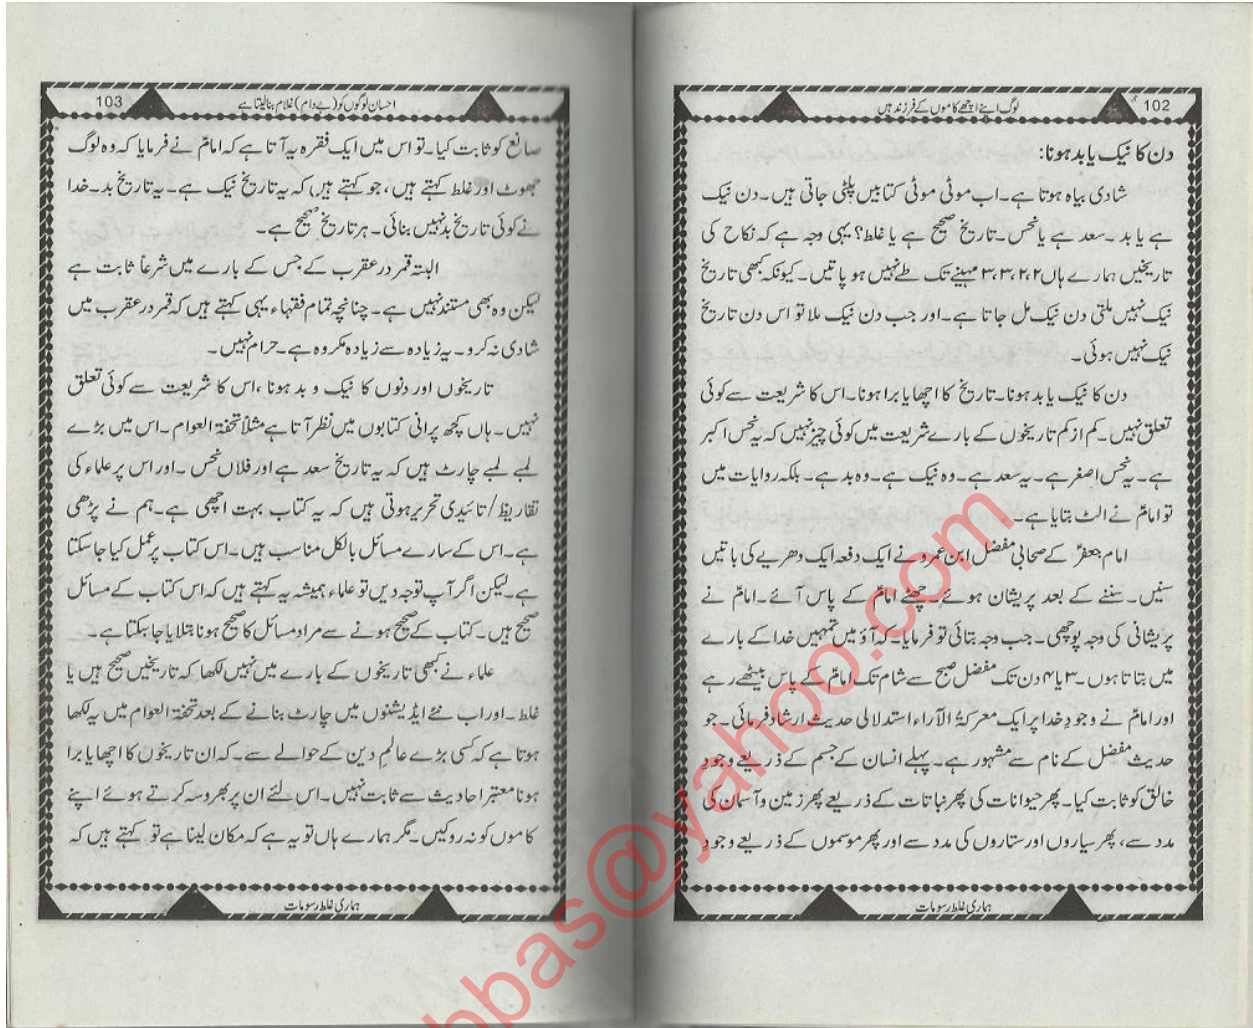 102
لوگ اپنے اچھے کاموں کے فرزند ہیں
دن کا نیک یا بد ہونا:
شادی بیاہ ہوتا ہے۔ اب موٹی موٹی کتابیں پلٹی جاتی ہیں۔ دن نیک
ہے یا بد۔ سعد ہے یا نحس۔ تاریخ صحیح ہے یا غلط؟ یہی وجہ ہے کہ نکاح کی
تاریخیں ہمارے ہاں ۲،۲،۳،۳ مہینے تک طے نہیں ہو پاتیں۔ کیونکہ کبھی تاریخ
نیک نہیں ملتی دن نیک مل جاتا ہے۔ اور جب دن نیک ملا تو اس دن تاریخ
نیک نہیں ہوئی۔
دن کا نیک یا بد ہونا۔ تاریخ کا اچھا یا برا ہونا۔ اس کا شریعت سے کوئی
تعلق نہیں۔ کم از کم تاریخوں کے بارے شریعت میں کوئی چیز نہیں کہ یہ نحس اکبر
ہے۔ یہ نحس اصغر ہے۔ یہ سعد ہے۔ وہ نیک ہے۔ وہ بد ہے۔ بلکہ روایات میں
تو امامؑ نے الٹ بتایا ہے۔
امام جعفرؑ کے صحابی مفضل ابن عمرو نے ایک دفعہ ایک دھریے کی باتیں
سنیں۔ سننے کے بعد پریشان ہوئے۔ چھٹے امامؑ کے پاس آئے۔ امامؑ نے
پریشانی کی وجہ پوچھی۔ جب وجہ بتائی تو فرمایا۔ کہ آؤ میں تمہیں خدا کے بارے
میں بتاتا ہوں۔ ۳ یا ۴ دن تک مفضل صبح سے شام تک امامؑ کے پاس بیٹھے رہے
اور امامؑ نے وجودِ خدا پر ایک معرکۃ الآراء استدلالی حدیث ارشاد فرمائی۔ جو
حدیث مفضل کے نام سے مشہور ہے۔ پہلے انسان کے جسم کے ذریعے وجودِ
خالق کو ثابت کیا۔ پھر حیوانات کی پھر نباتات کے ذریعے پھر زمین و آسمان کی
مدد سے، پھر سیاروں اور ستاروں کی مدد سے اور پھر موسموں کے ذریعے وجودِ
ہماری غلط رسومات
103
احسان لوگوں کو (بے دام) غلام بنا لیتا ہے
صانع کو ثابت کیا۔ تو اس میں ایک فقرہ یہ آتا ہے کہ امامؑ نے فرمایا کہ وہ لوگ
جھوٹ اور غلط کہتے ہیں، جو کہتے ہیں کہ یہ تاریخ نیک ہے۔ یہ تاریخ بد۔ خدا
نے کوئی تاریخ بد نہیں بنائی۔ ہر تاریخ صحیح ہے۔
البتہ قمر در عقرب کے جس کے بارے میں شرعاً ثابت ہے
لیکن وہ بھی مستند نہیں ہے۔ چنانچہ تمام فقہاء یہی کہتے ہیں کہ قمر در عقرب میں
شادی نہ کرو۔ یہ زیادہ سے زیادہ مکروہ ہے۔ حرام نہیں۔
تاریخوں اور دنوں کا نیک و بد ہونا، اس کا شریعت سے کوئی تعلق
نہیں۔ ہاں کچھ پرانی کتابوں میں نظر آتا ہے مثلاً تحفۃ العوام۔ اس میں بڑے
لمبے لمبے چارٹ ہیں کہ یہ تاریخ سعد ہے اور فلاں نحس۔ اور اس پر علماء کی
تقاریظ/تائیدی تحریر ہوتی ہیں کہ یہ کتاب بہت اچھی ہے۔ ہم نے پڑھی
ہے۔ اس کے سارے مسائل بالکل مناسب ہیں۔ اس کتاب پر عمل کیا جا سکتا
ہے۔ لیکن اگر آپ توجہ دیں تو علماء ہمیشہ یہ کہتے ہیں کہ اس کتاب کے مسائل
صحیح ہیں۔ کتاب کے صحیح ہونے سے مراد مسائل کا صحیح ہونا بتلایا جا سکتا ہے۔
علماء نے کبھی تاریخوں کے بارے میں نہیں لکھا کہ تاریخیں صحیح ہیں یا
غلط۔ اور اب نئے ایڈیشنوں میں چارٹ بنانے کے بعد تحفۃ العوام میں یہ لکھا
ہوتا ہے کہ کسی بڑے عالمِ دین کے حوالے سے۔ کہ ان تاریخوں کا اچھا یا برا
ہونا معتبر احادیث سے ثابت نہیں۔ اس لئے ان پر بھروسہ کرتے ہوئے اپنے
کاموں کو نہ روکیں۔ مگر ہمارے ہاں تو یہ ہے کہ مکان لینا ہے تو کہتے ہیں کہ
ہماری غلط رسومات
bbas@yahoo.com